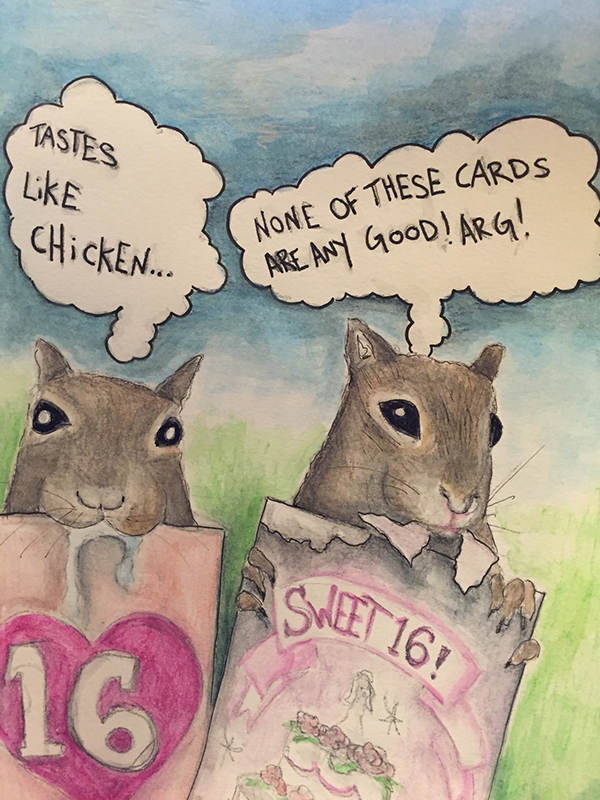 TASTES
LiKE
CHiCKEN...
NONE OF THESE CARDS
ARE ANY GOOD! ARG!
SWEET 16!
16